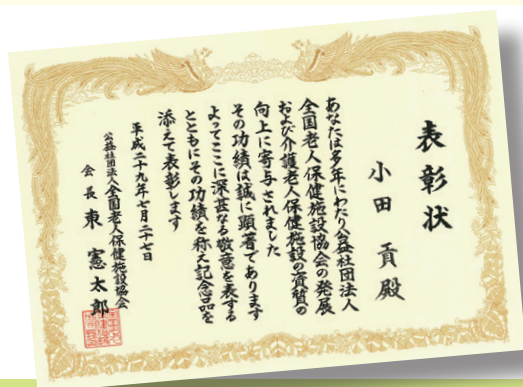 表彰状
小田 貢 殿
あなたは多年にわたり公益社団法人
全国老人保健施設協会の発展
および介護老人保健施設の資質の
向上に寄与されました
その功績は誠に顕著であります
よってここに深甚なる敬意を表する
とともにその功績を称え記念品を
添えて表彰します
平成二十九年七月二十七日
公益社団法人全国老人保健施設協会
会長 東 憲太郎